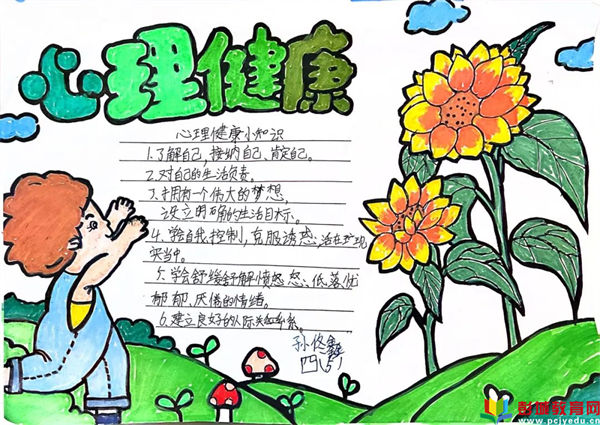 心理健康
心理健康小知识
1.了解自己,接纳自己、肯定自己。
2.对自己的生活负责。
3.拥有一个伟大的梦想,
设立明确的生活目标。
4.学会自我控制,克服诱惑,活在现
实当中。
5.学会舒缓舒解愤怒、低落、忧
郁郁、厌倦的情绪。
6.建立良好的人际关系。
孙修
四
彭城教育网
www.pcjyedu.cn